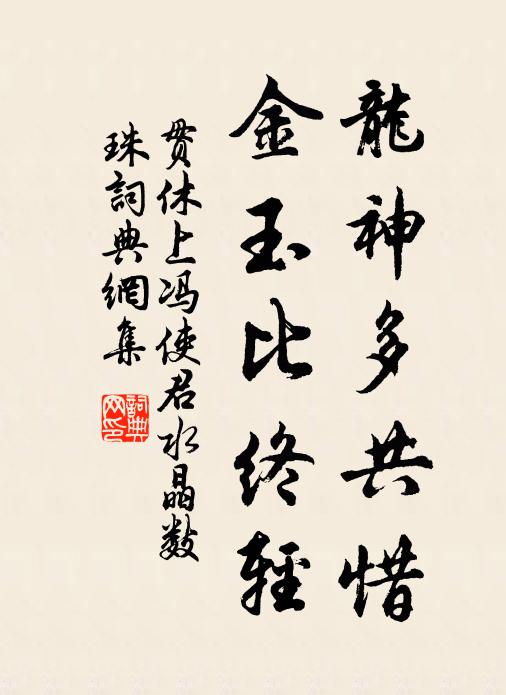 龍神多共惜
金玉比終輕
貫休上冯使君水晶数
珠詞典網集
詞典
网印